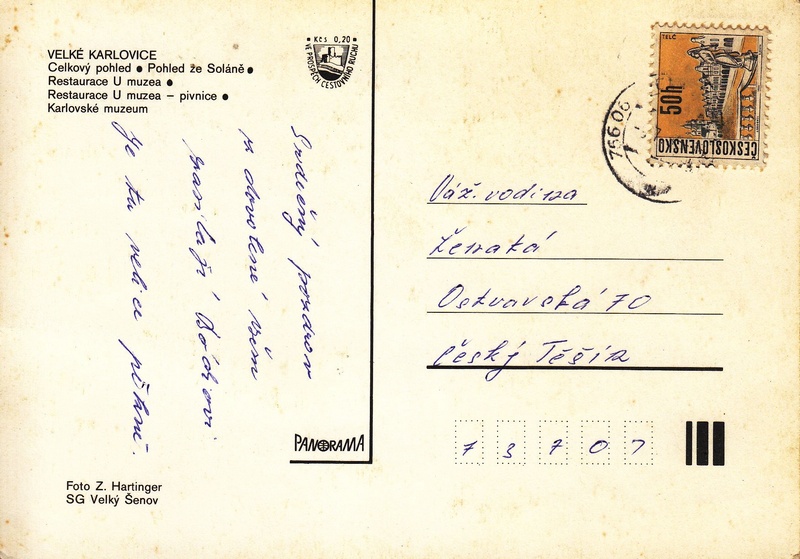 VELKÉ KARLOVICE
Celkový pohled ● Pohled že Soláně ●
Restaurace U muzea ●
Restaurace U muzea – pivnice ●
Karlovské muzeum
Kčs 0,20
VE PROSPĚCH CESTOVNÍHO RUCHU
Srdečný pozdrav
z dovolené Vám
zasílají
Je tu velice pěkně.
PANORAMA
Foto Z. Hartinger
SG Velký Šenov
TELČ
50h
ČESKOSLOVENSKO
756 06
Váž. rodina
Ženatá
Ostravská 70
Český Těšín
7 3 7 0 1